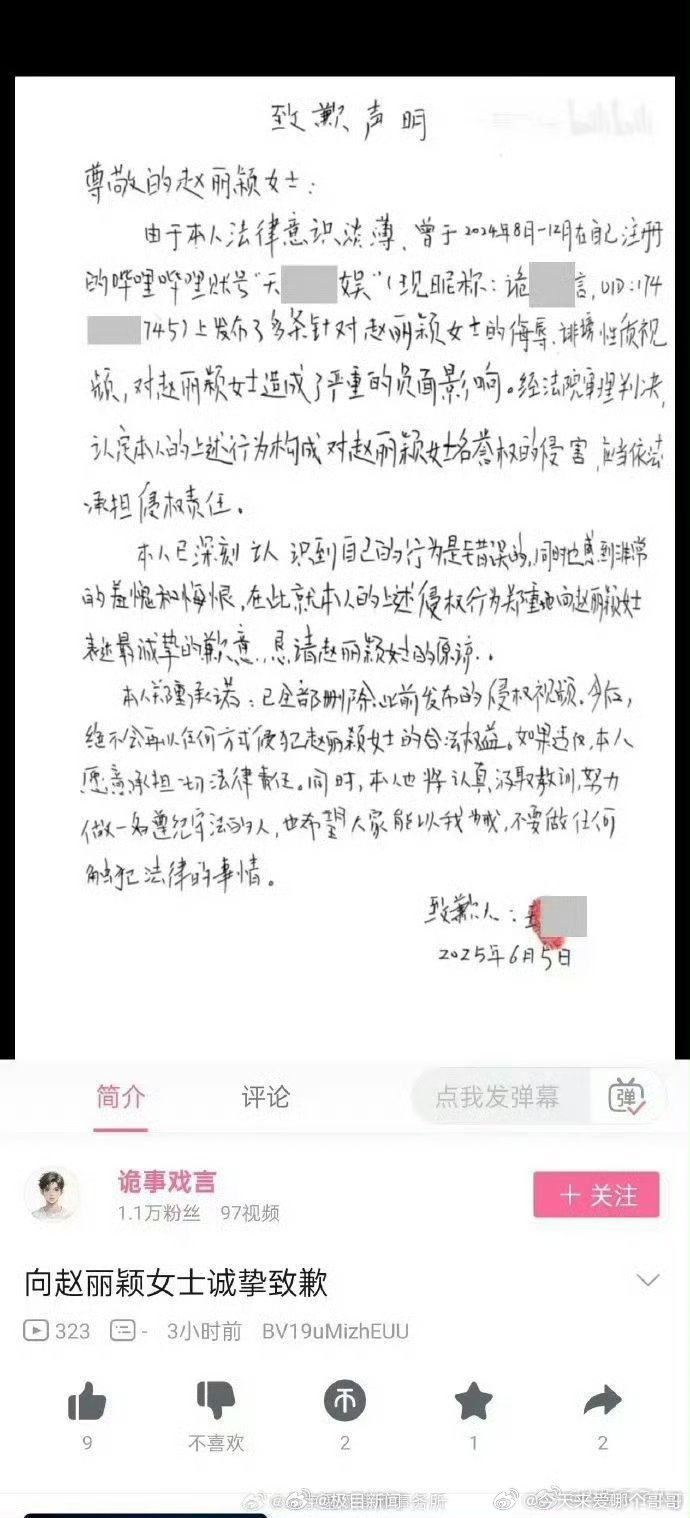 致歉声明
尊敬的赵丽颖女士:
由于本人法律意识淡薄,曾于2024年8月-12月在自己注册
的哔哩哔哩账号“天 娱”(现昵称:诡 言,UID:174
745)上发布了多条针对赵丽颖女士的侮辱、诽谤性质视
频,对赵丽颖女士造成了严重的负面影响。经法院审理判决,
认定本人的上述行为构成对赵丽颖女士名誉权的侵害,应当依法
承担侵权责任。
本人已深刻认识到自己的行为是错误的,同时也感到非常
的羞愧和悔恨,在此就本人的上述侵权行为郑重地向赵丽颖女士
表达最诚挚的歉意,恳请赵丽颖女士的原谅..
本人郑重承诺:已全部删除此前发布的侵权视频.今后,
绝不会再以任何方式侵犯赵丽颖女士的合法权益。如果违反,本人
愿意承担一切法律责任。同时,本人也将认真汲取教训,努力
做一名遵纪守法的人,也希望大家能以我为戒,不要做任何
触犯法律的事情。
致歉人:
2025年6月5日
简介 评论 点我发弹幕 弹
诡事戏言
1.1万粉丝 97视频
+ 关注
向赵丽颖女士诚挚致歉
323 - 3小时前 BV19uMizhEUU
9 不喜欢 2 1 2
@极目新闻 事务所 @今天来爱哪个哥哥